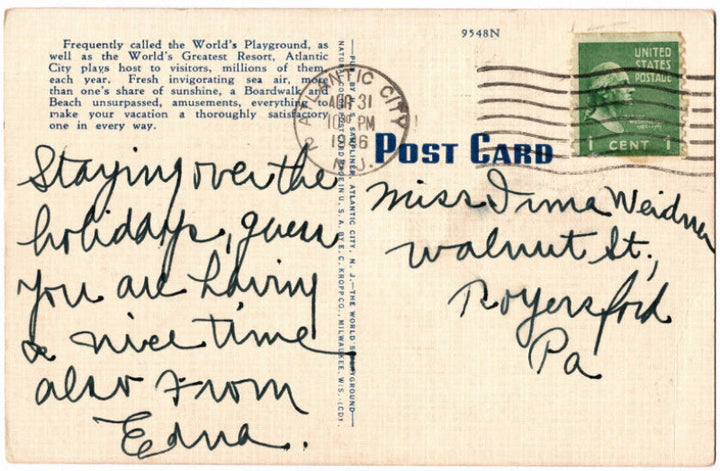 Frequently called the World's Playground, as
well as the World's Greatest Resort, Atlantic
City plays host to visitors, millions of them
each year. Fresh invigorating sea air, more
than one's share of sunshine, a Boardwalk and
Beach unsurpassed, amusements, everything to
make your vacation a thoroughly satisfactory
one in every way.
Staying over the
holidays, guess
you are having
a nice time
also From
Edna.
NATURAL COLOR POST CARD MADE IN U. S. A. BY E. C. KROPP CO., MILWAUKEE, WIS.
PUB. BY SAMPLINER, ATLANTIC CITY, N. J.—THE WORLD'S PLAYGROUND—
9548N
ATLANTIC CITY
AUG 31
PM
N.J.
UNITED
STATES
POSTAGE
1 CENT 1
POST CARD
Miss Irma Weidner
Walnut St.,
Royersford
Pa